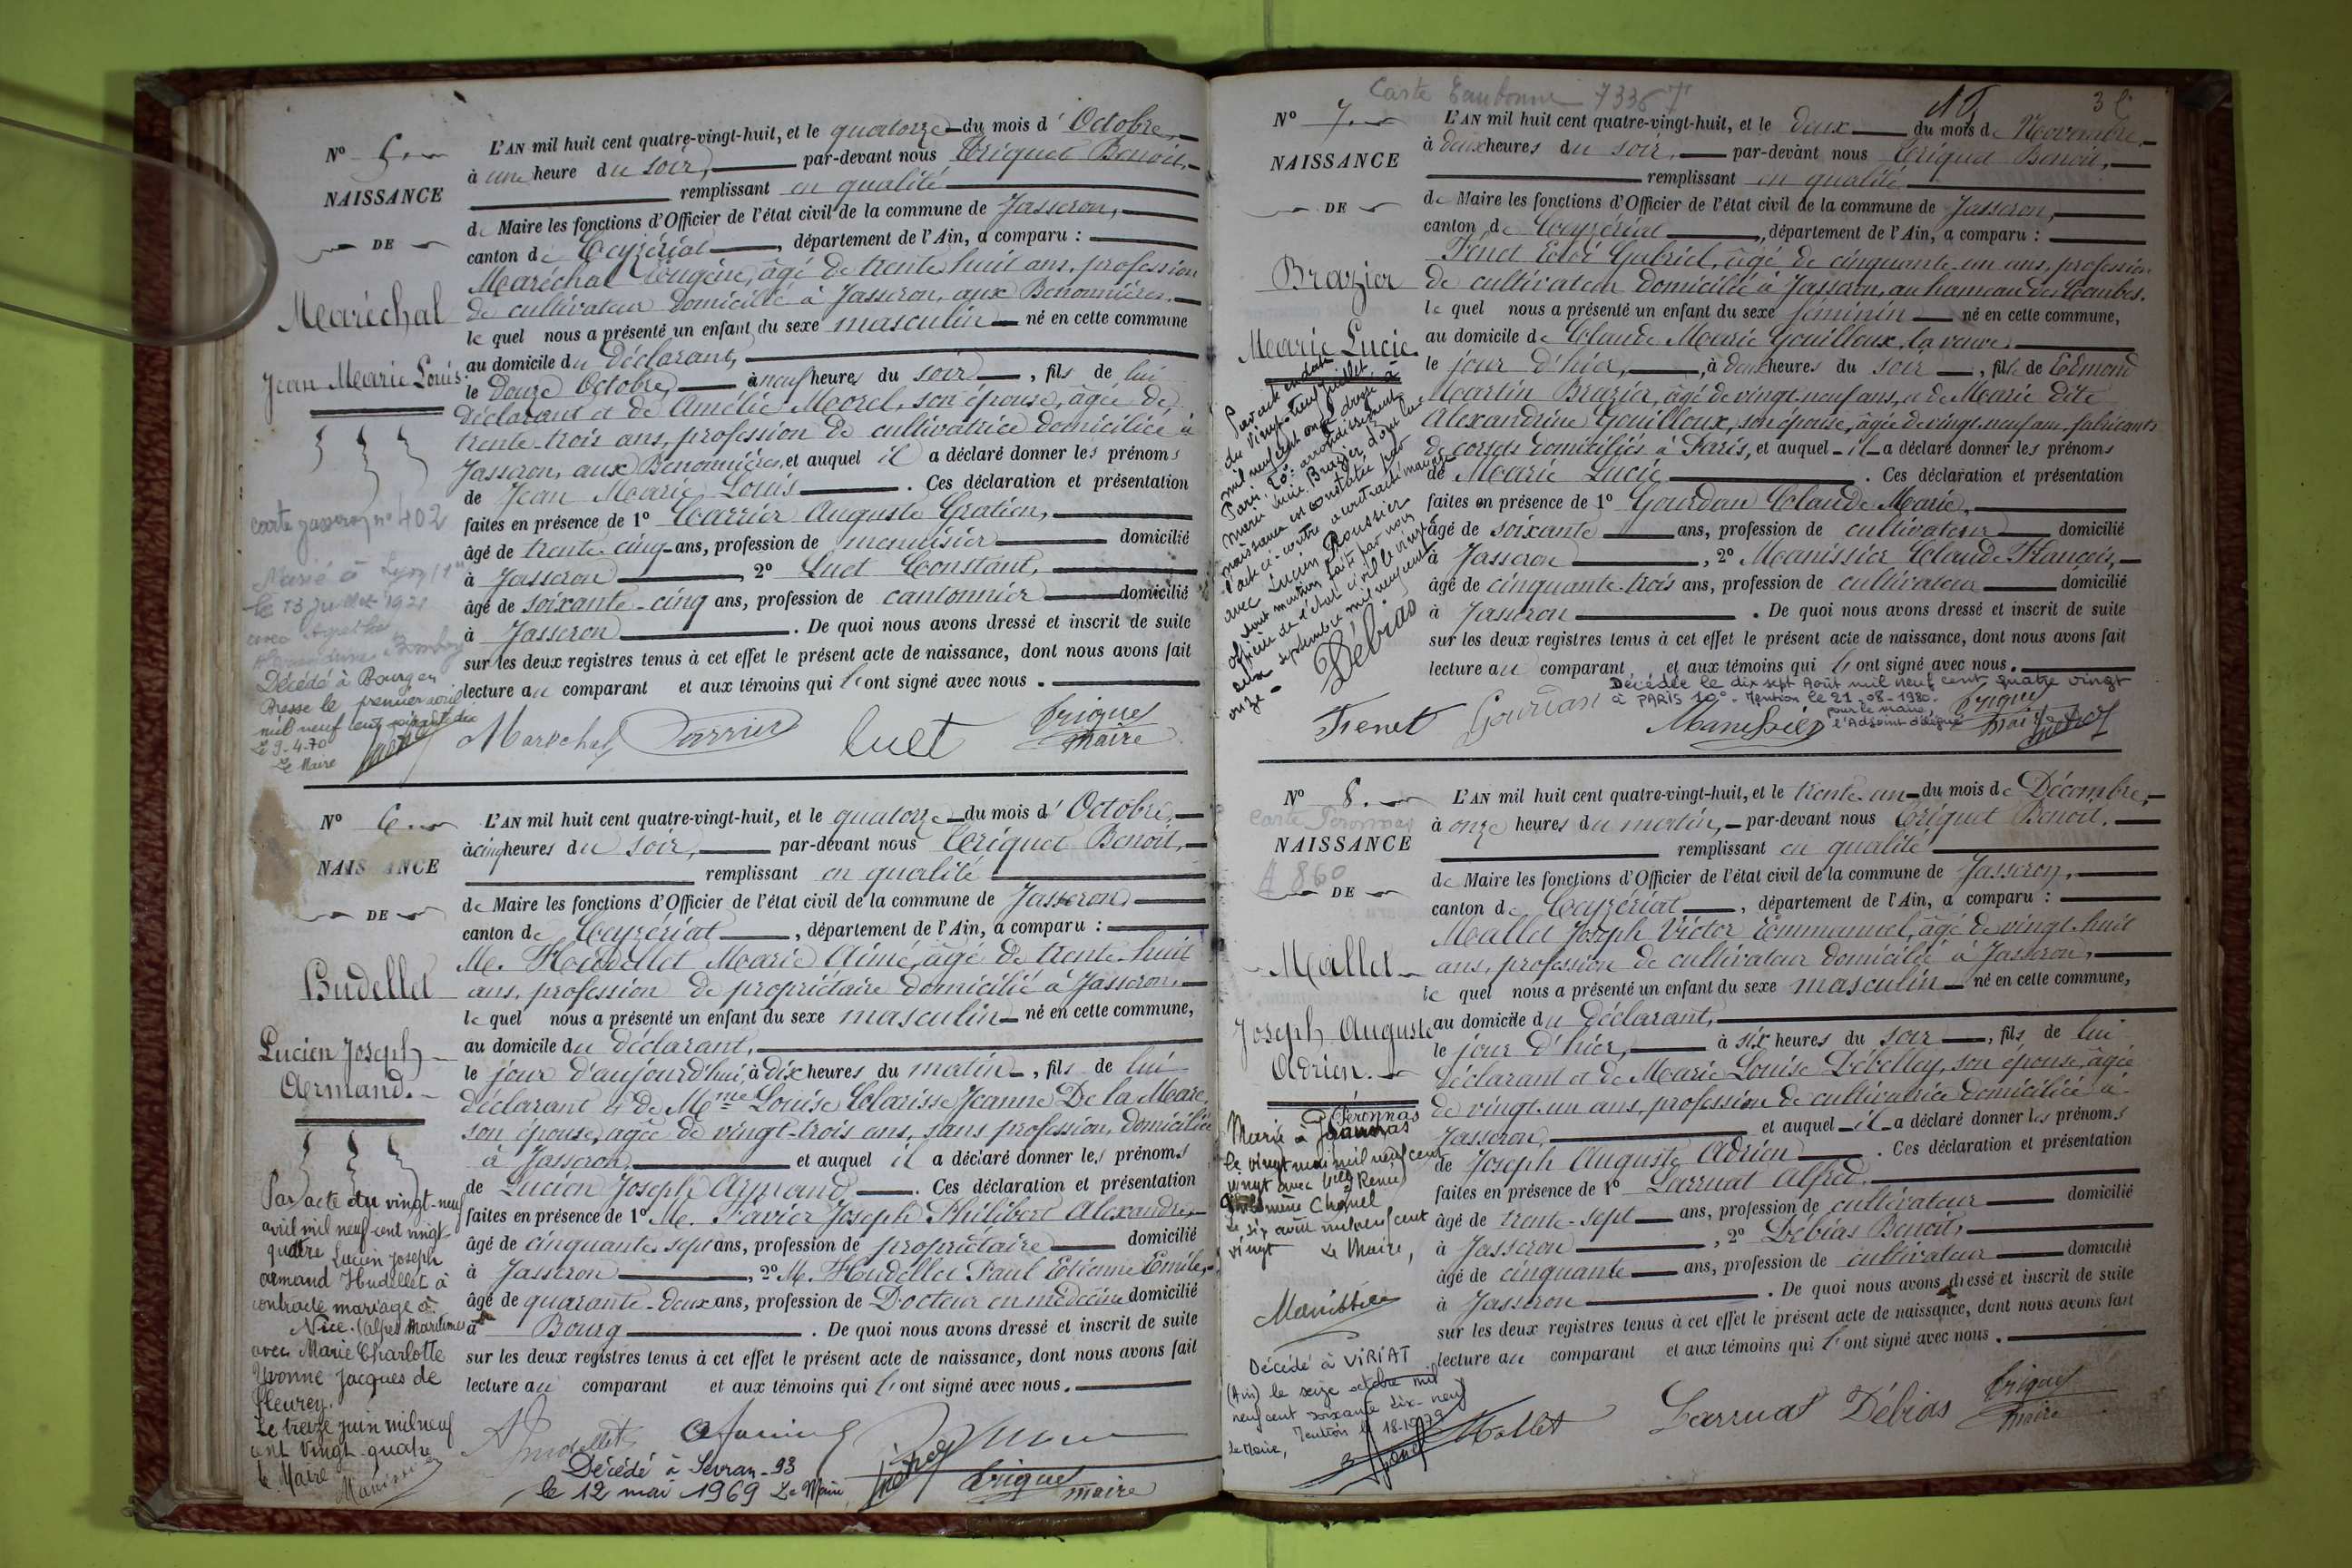 N° 5.
NAISSANCE
DE
Maréchal
Jean Marie Louis
carte Jasseron n° 402
Marié à Lyon
le 13 juillet 1921
avec
Décédé à Bourg en
Bresse le premier avril
mil neuf cent soixante dix
Le 9.4.70
Le Maire
L'AN mil huit cent quatre-vingt-huit, et le quatorze du mois d'Octobre,
à une heure du soir, par-devant nous Triquet Benoit,
remplissant en qualité
de Maire les fonctions d'Officier de l'état civil de la commune de Jasseron,
canton de Ceyzériat, département de l'Ain, a comparu :
Maréchal Eugène, âgé de trente huit ans, profession
de cultivateur domicilié à Jasseron, aux Benonnières,
le quel nous a présenté un enfant du sexe masculin né en cette commune
au domicile du déclarant,
le douze Octobre, à neuf heures du soir, fils de lui
déclarant et de Amélie Morel, son épouse, âgée de
trente-trois ans, profession de cultivatrice domiciliée à
Jasseron, aux Benonnières, et auquel il a déclaré donner les prénoms
de Jean Marie Louis. Ces déclaration et présentation
faites en présence de 1° Carrier Auguste Gratien,
âgé de trente-cinq ans, profession de menuisier domicilié
à Jasseron, 2° Luet Constant,
âgé de soixante-cinq ans, profession de cantonnier domicilié
à Jasseron. De quoi nous avons dressé et inscrit de suite
sur les deux registres tenus à cet effet le présent acte de naissance, dont nous avons fait
lecture au comparant et aux témoins qui l'ont signé avec nous.
Marechal Carrier Luet Triquet
maire
N° 6.
NAISSANCE
DE
Hudellet
Lucien Joseph
Armand.
Par acte du vingt-neuf
avril mil neuf cent vingt
quatre Lucien Joseph
Armand Hudellet a
contracté mariage à
Nice. (Alpes Maritimes)
avec Marie Charlotte
Yvonne Jacques de
Fleurey.
Le treize juin mil neuf
cent vingt-quatre
Le Maire
Manissier
L'AN mil huit cent quatre-vingt-huit, et le quatorze du mois d'Octobre,
à cinq heures du soir, par-devant nous Triquet Benoit,
remplissant en qualité
de Maire les fonctions d'Officier de l'état civil de la commune de Jasseron
canton de Ceyzériat, département de l'Ain, a comparu :
M. Hudellet Marie Aimé, âgé de trente-huit
ans, profession de propriétaire domicilié à Jasseron,
le quel nous a présenté un enfant du sexe masculin né en cette commune,
au domicile du déclarant,
le jour d'aujourd'hui, à dix heures du matin, fils de lui
déclarant & de Mme Louise Clarisse Jeanne De la Mare,
son épouse, âgée de vingt-trois ans, sans profession, domiciliée
à Jasseron, et auquel il a déclaré donner les prénoms
de Lucien Joseph Armand. Ces déclaration et présentation
faites en présence de 1° M. Favier Joseph Philibert Alexandre,
âgé de cinquante-sept ans, profession de propriétaire domicilié
à Jasseron, 2° M. Hudellet Paul Etienne Emile,
âgé de quarante-deux ans, profession de Docteur en médecine domicilié
à Bourg. De quoi nous avons dressé et inscrit de suite
sur les deux registres tenus à cet effet le présent acte de naissance, dont nous avons fait
lecture au comparant et aux témoins qui l'ont signé avec nous.
Hudellet
Décédé à Sevran-93
le 12 mai 1969 Le Maire
Triquet
maire
Carte Eaubonne 7336
N° 7.
NAISSANCE
DE
Brazier
Marie Lucie
Par acte en date
du vingt-neuf juillet
mil neuf cent onze dressé à
Paris, 20e arrondissement
Marie Lucie Brazier, dont la
naissance est constatée par
l'acte ci-contre a contracté mariage
avec Lucien Roussier
dont mention faite par nous
officier de l'état civil le vingt
deux septembre mil neuf cent
onze.
Débias
L'AN mil huit cent quatre-vingt-huit, et le deux du mois de Novembre,
à deux heures du soir, par-devant nous Triquet Benoit,
remplissant en qualité
de Maire les fonctions d'Officier de l'état civil de la commune de Jasseron,
canton de Ceyzériat, département de l'Ain, a comparu :
Fénet Gabriel, âgé de cinquante-un ans, profession
de cultivateur domicilié à Jasseron, au hameau des Combes.
le quel nous a présenté un enfant du sexe féminin né en cette commune,
au domicile de Claude Marie Gouilloux, la veuve
le jour d'hier, à deux heures du soir, fille de Edmond
Martin Brazier, âgé de vingt-neuf ans, et de Marie dite
Alexandrine Gouilloux, son épouse, âgée de vingt-neuf ans, fabricants
de corsets domiciliés à Paris, et auquel il a déclaré donner les prénoms
de Marie Lucie. Ces déclaration et présentation
faites en présence de 1° Gourdan Claude Marie,
âgé de soixante ans, profession de cultivateur domicilié
à Jasseron, 2° Manissier Claude François,
âgé de cinquante-trois ans, profession de cultivateur domicilié
à Jasseron. De quoi nous avons dressé et inscrit de suite
sur les deux registres tenus à cet effet le présent acte de naissance, dont nous avons fait
lecture au comparant et aux témoins qui l'ont signé avec nous.
Décédée le dix sept Août mil neuf cent quatre vingt
à PARIS 10°. Mention le 21-08-1980.
pour le maire,
l'Adjoint délégué
Fenet Gourdan Manissier Triquet
maire
N° 8.
Carte Péronnas
NAISSANCE
A 860
DE
Mallet
Joseph Auguste
Adrien.
Péronnas
Marié à
le vingt mai mil neuf cent
vingt avec
Chanel
Le six août mil neuf cent
vingt Le Maire,
Manissier
Décédé à VIRIAT
(Ain) le seize octobre mil
neuf cent soixante dix-neuf
Mention le 18.10.79
Le Maire,
L'AN mil huit cent quatre-vingt-huit, et le trente-un du mois de Décembre,
à onze heures du matin, par-devant nous Triquet Benoit,
remplissant en qualité
de Maire les fonctions d'Officier de l'état civil de la commune de Jasseron,
canton de Ceyzériat, département de l'Ain, a comparu :
Mallet Joseph Victor Emmanuel, âgé de vingt-huit
ans, profession de cultivateur domicilié à Jasseron,
le quel nous a présenté un enfant du sexe masculin né en cette commune,
au domicile du déclarant,
le jour d'hier, à six heures du soir, fils de lui
déclarant et de Marie Louise Débelley, son épouse, âgée
de vingt-un ans, profession de cultivatrice domiciliée à
Jasseron, et auquel il a déclaré donner les prénoms
de Joseph Auguste Adrien. Ces déclaration et présentation
faites en présence de 1° Larruat Alfred,
âgé de trente-sept ans, profession de cultivateur domicilié
à Jasseron, 2° Débias Benoit,
âgé de cinquante ans, profession de cultivateur domicilié
à Jasseron. De quoi nous avons dressé et inscrit de suite
sur les deux registres tenus à cet effet le présent acte de naissance, dont nous avons fait
lecture au comparant et aux témoins qui l'ont signé avec nous.
Mallet Larruat Débias Triquet
maire